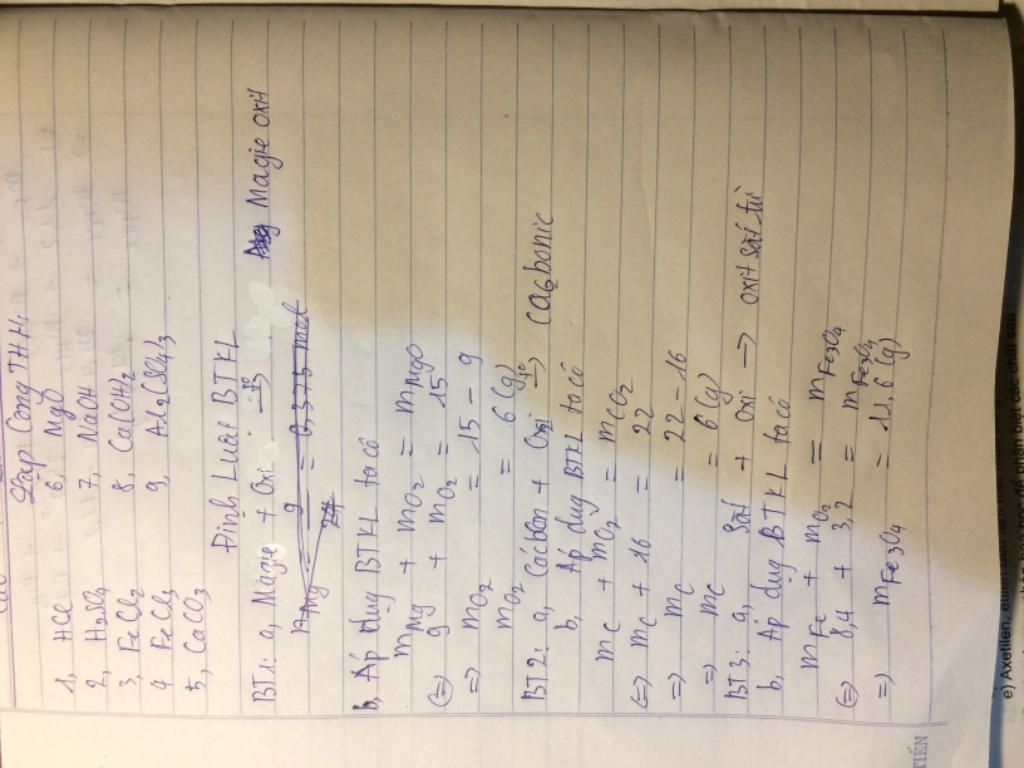 Lập Công THH:
1, HCl 6, MgO
2, H2SO4 7, NaOH
3, FeCl2 8, Ca(OH)2
4 FeCl3 9, Al2(SO4)3
5, CaCO3
Định Luật BTKL
BT1: a, Magie + Oxi → Magie oxit
b, Áp dụg BTKL ta có
mMg + mO2 = mMgO
(=) 9 + mO2 = 15
=) mO2 = 15 - 9
mO2 = 6 (g)
BT2: a, Cácbon + Oxi → Cacbonic
b, Áp dụg BTKL ta có
mC + mO2 = mCO2
(=) mC + 16 = 22
=) mC = 22 - 16
=) mC = 6 (g)
BT3: a, Sắt + Oxi → oxit sắt từ
b, Áp dụg BTKL ta có
mFe + mO2 = mFe3O4
(=) 8,4 + 3,2 = mFe3O4
=) mFe3O4 = 11,6 (g)
TIẾN
e) Axetilen,
để phân biệt các chất sau